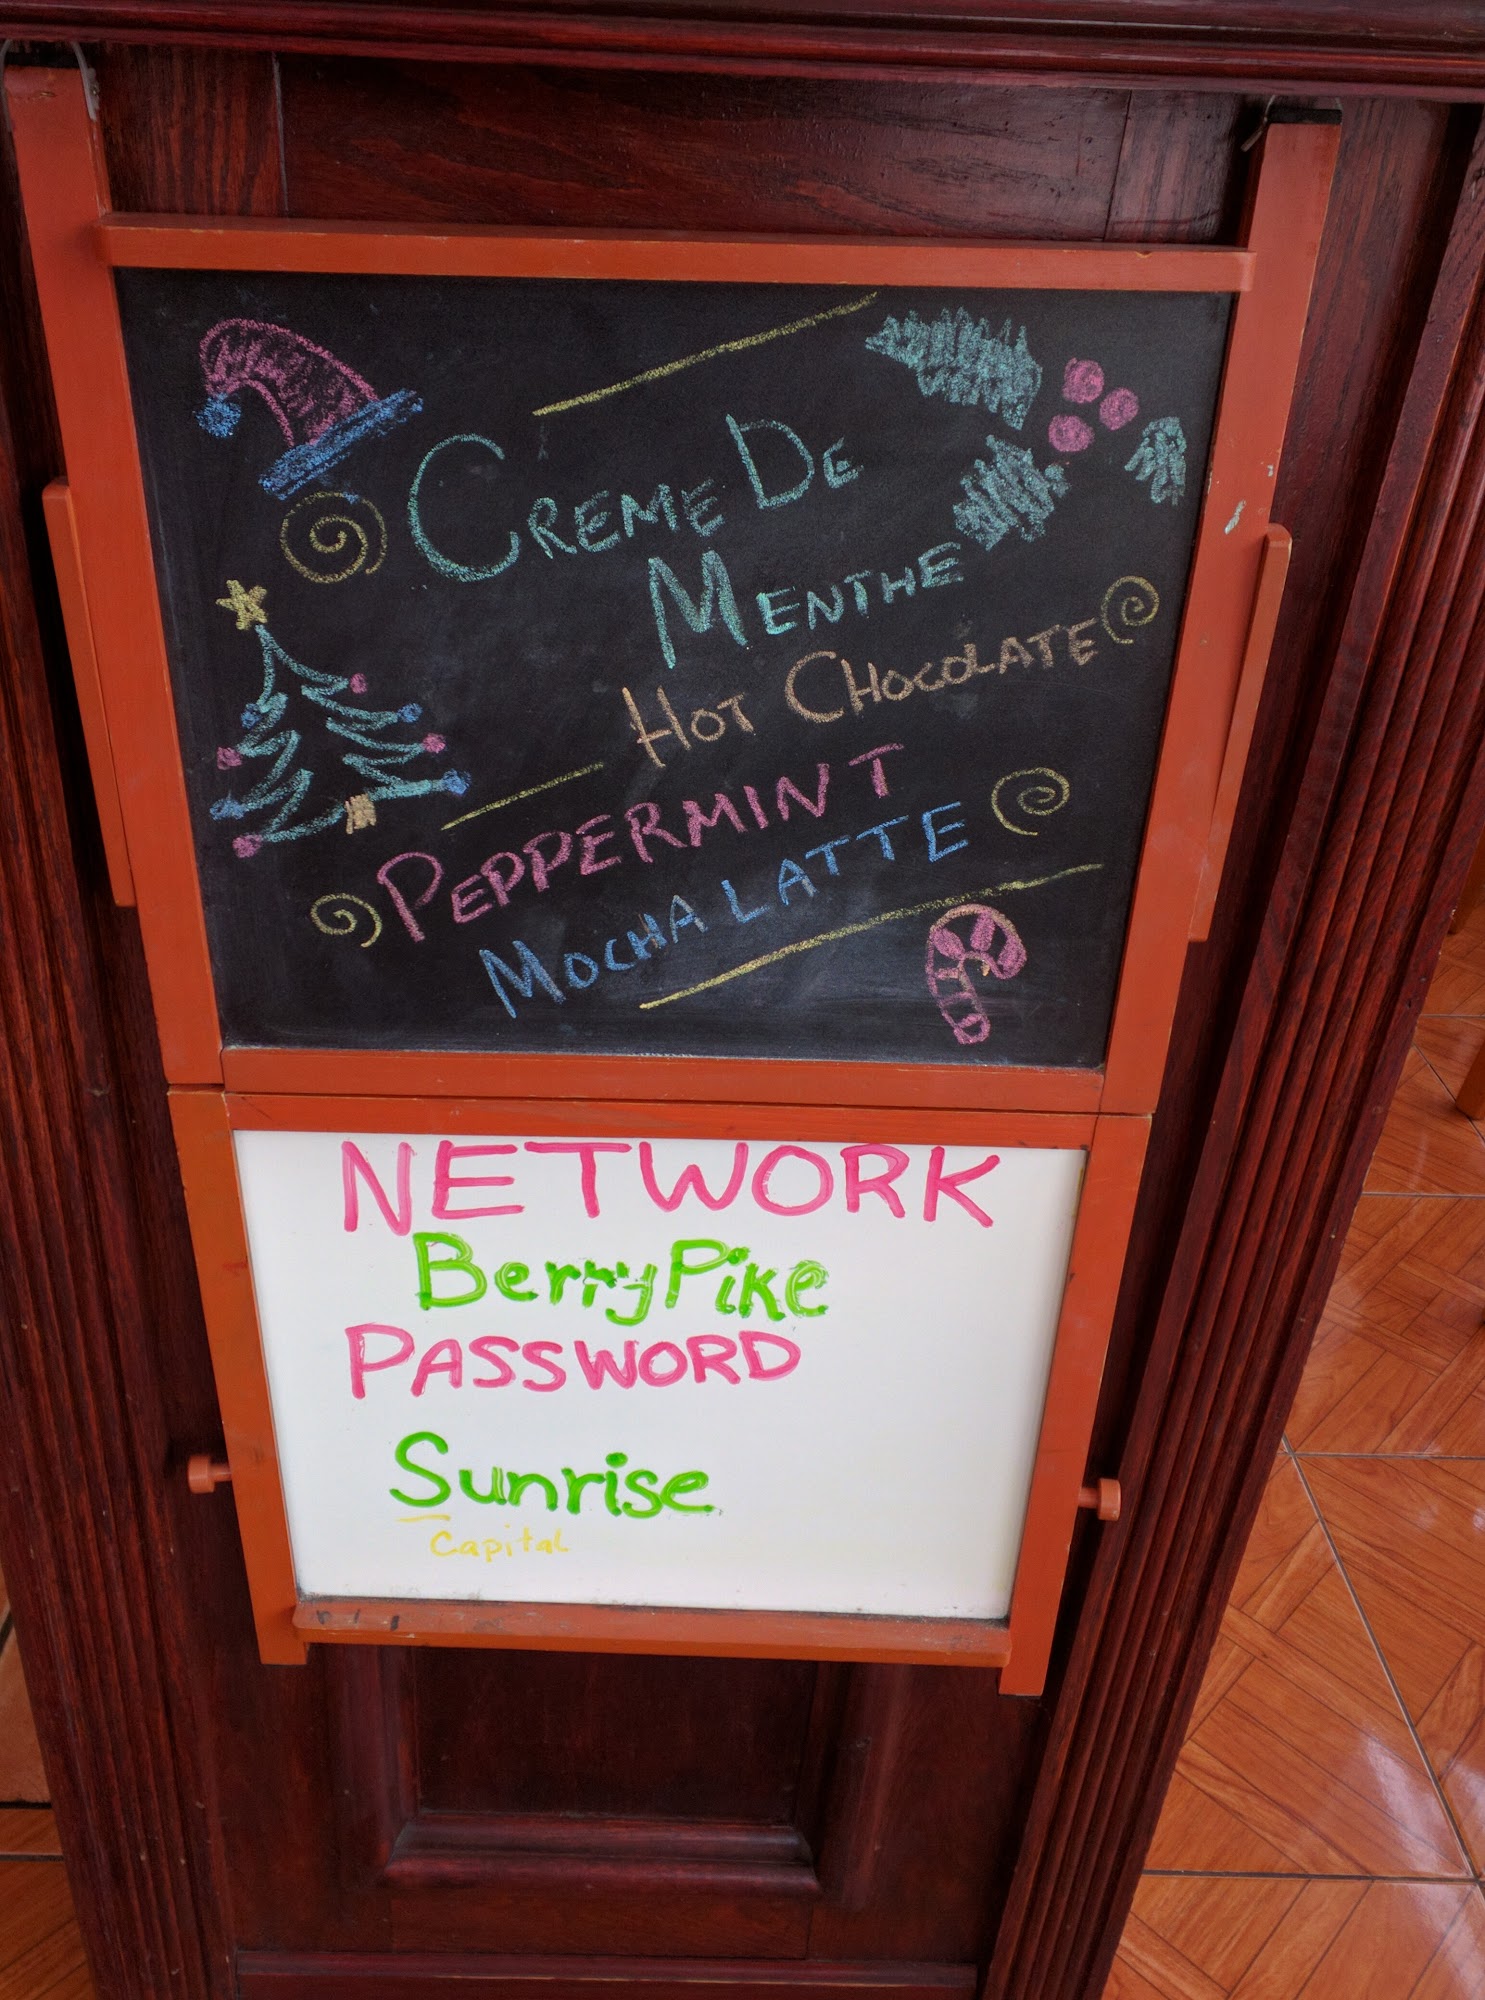 CREME DE
MENTHE
HOT CHOCOLATE
PEPPERMINT
MOCHA LATTE
NETWORK
BerryPike
PASSWORD
Sunrise
Capital